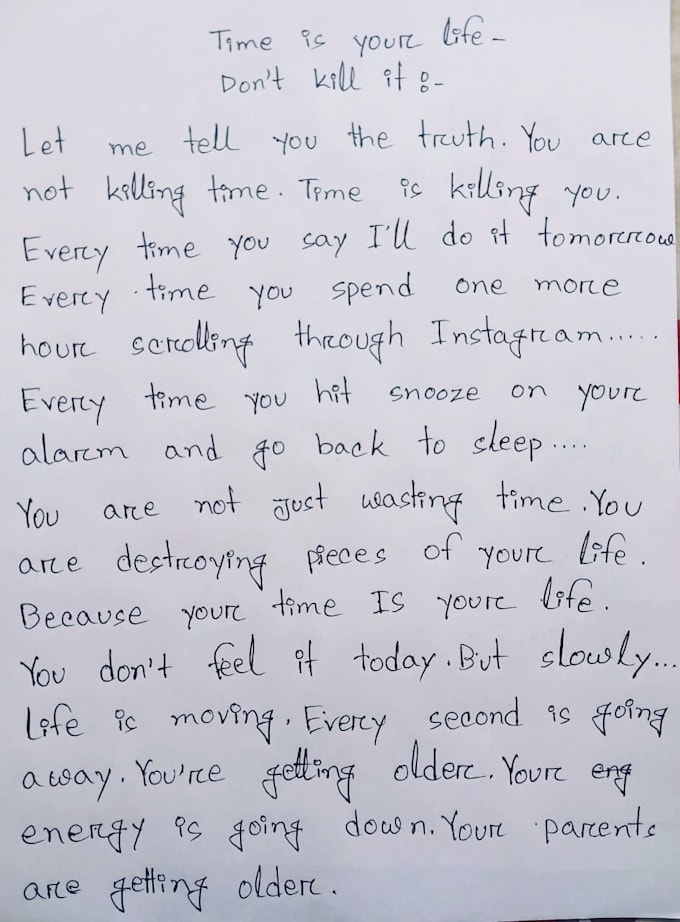 Time is your life -
Don't kill it :-
Let me tell you the truth. You are
not killing time. Time is killing you.
Every time you say I'll do it tomorrow
Every time you spend one more
hour scrolling through Instagram.....
Every time you hit snooze on your
alarm and go back to sleep....
You are not just wasting time. You
are destroying pieces of your life.
Because your time IS your life.
You don't feel it today. But slowly...
Life is moving. Every second is going
away. You're getting older. Your eng
energy is going down. Your parents
are getting older.